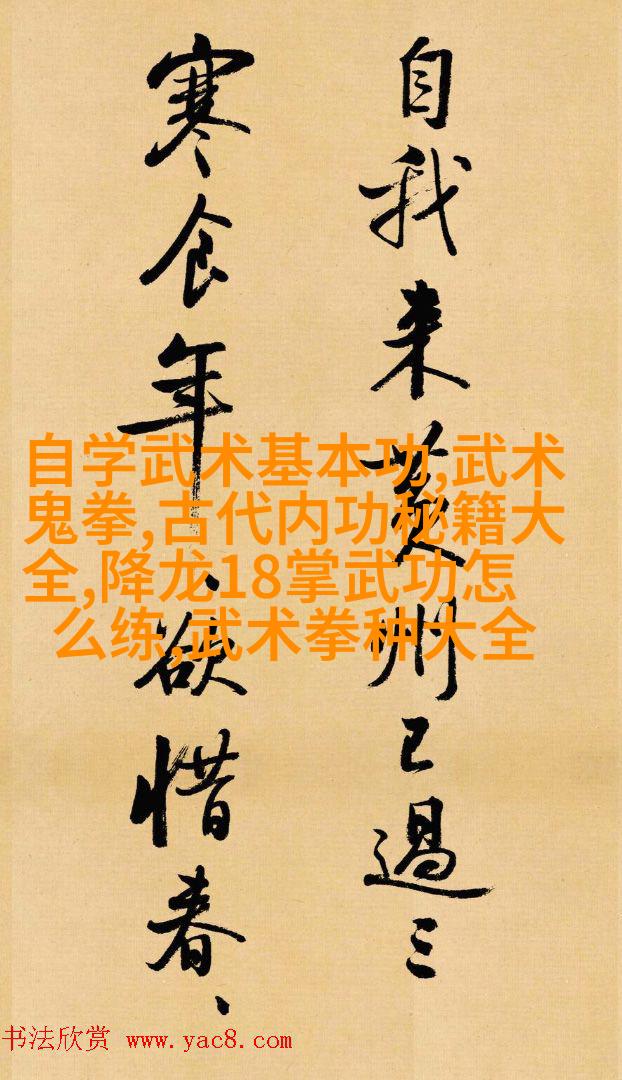 自我来黄州已過三
寒食年、欲惜春、
自学武术基本功,武术
鬼拳,古代内功秘籍大
全,降龙18掌武功怎
么练,武术拳种大全
书法欣赏 www.yac8.com